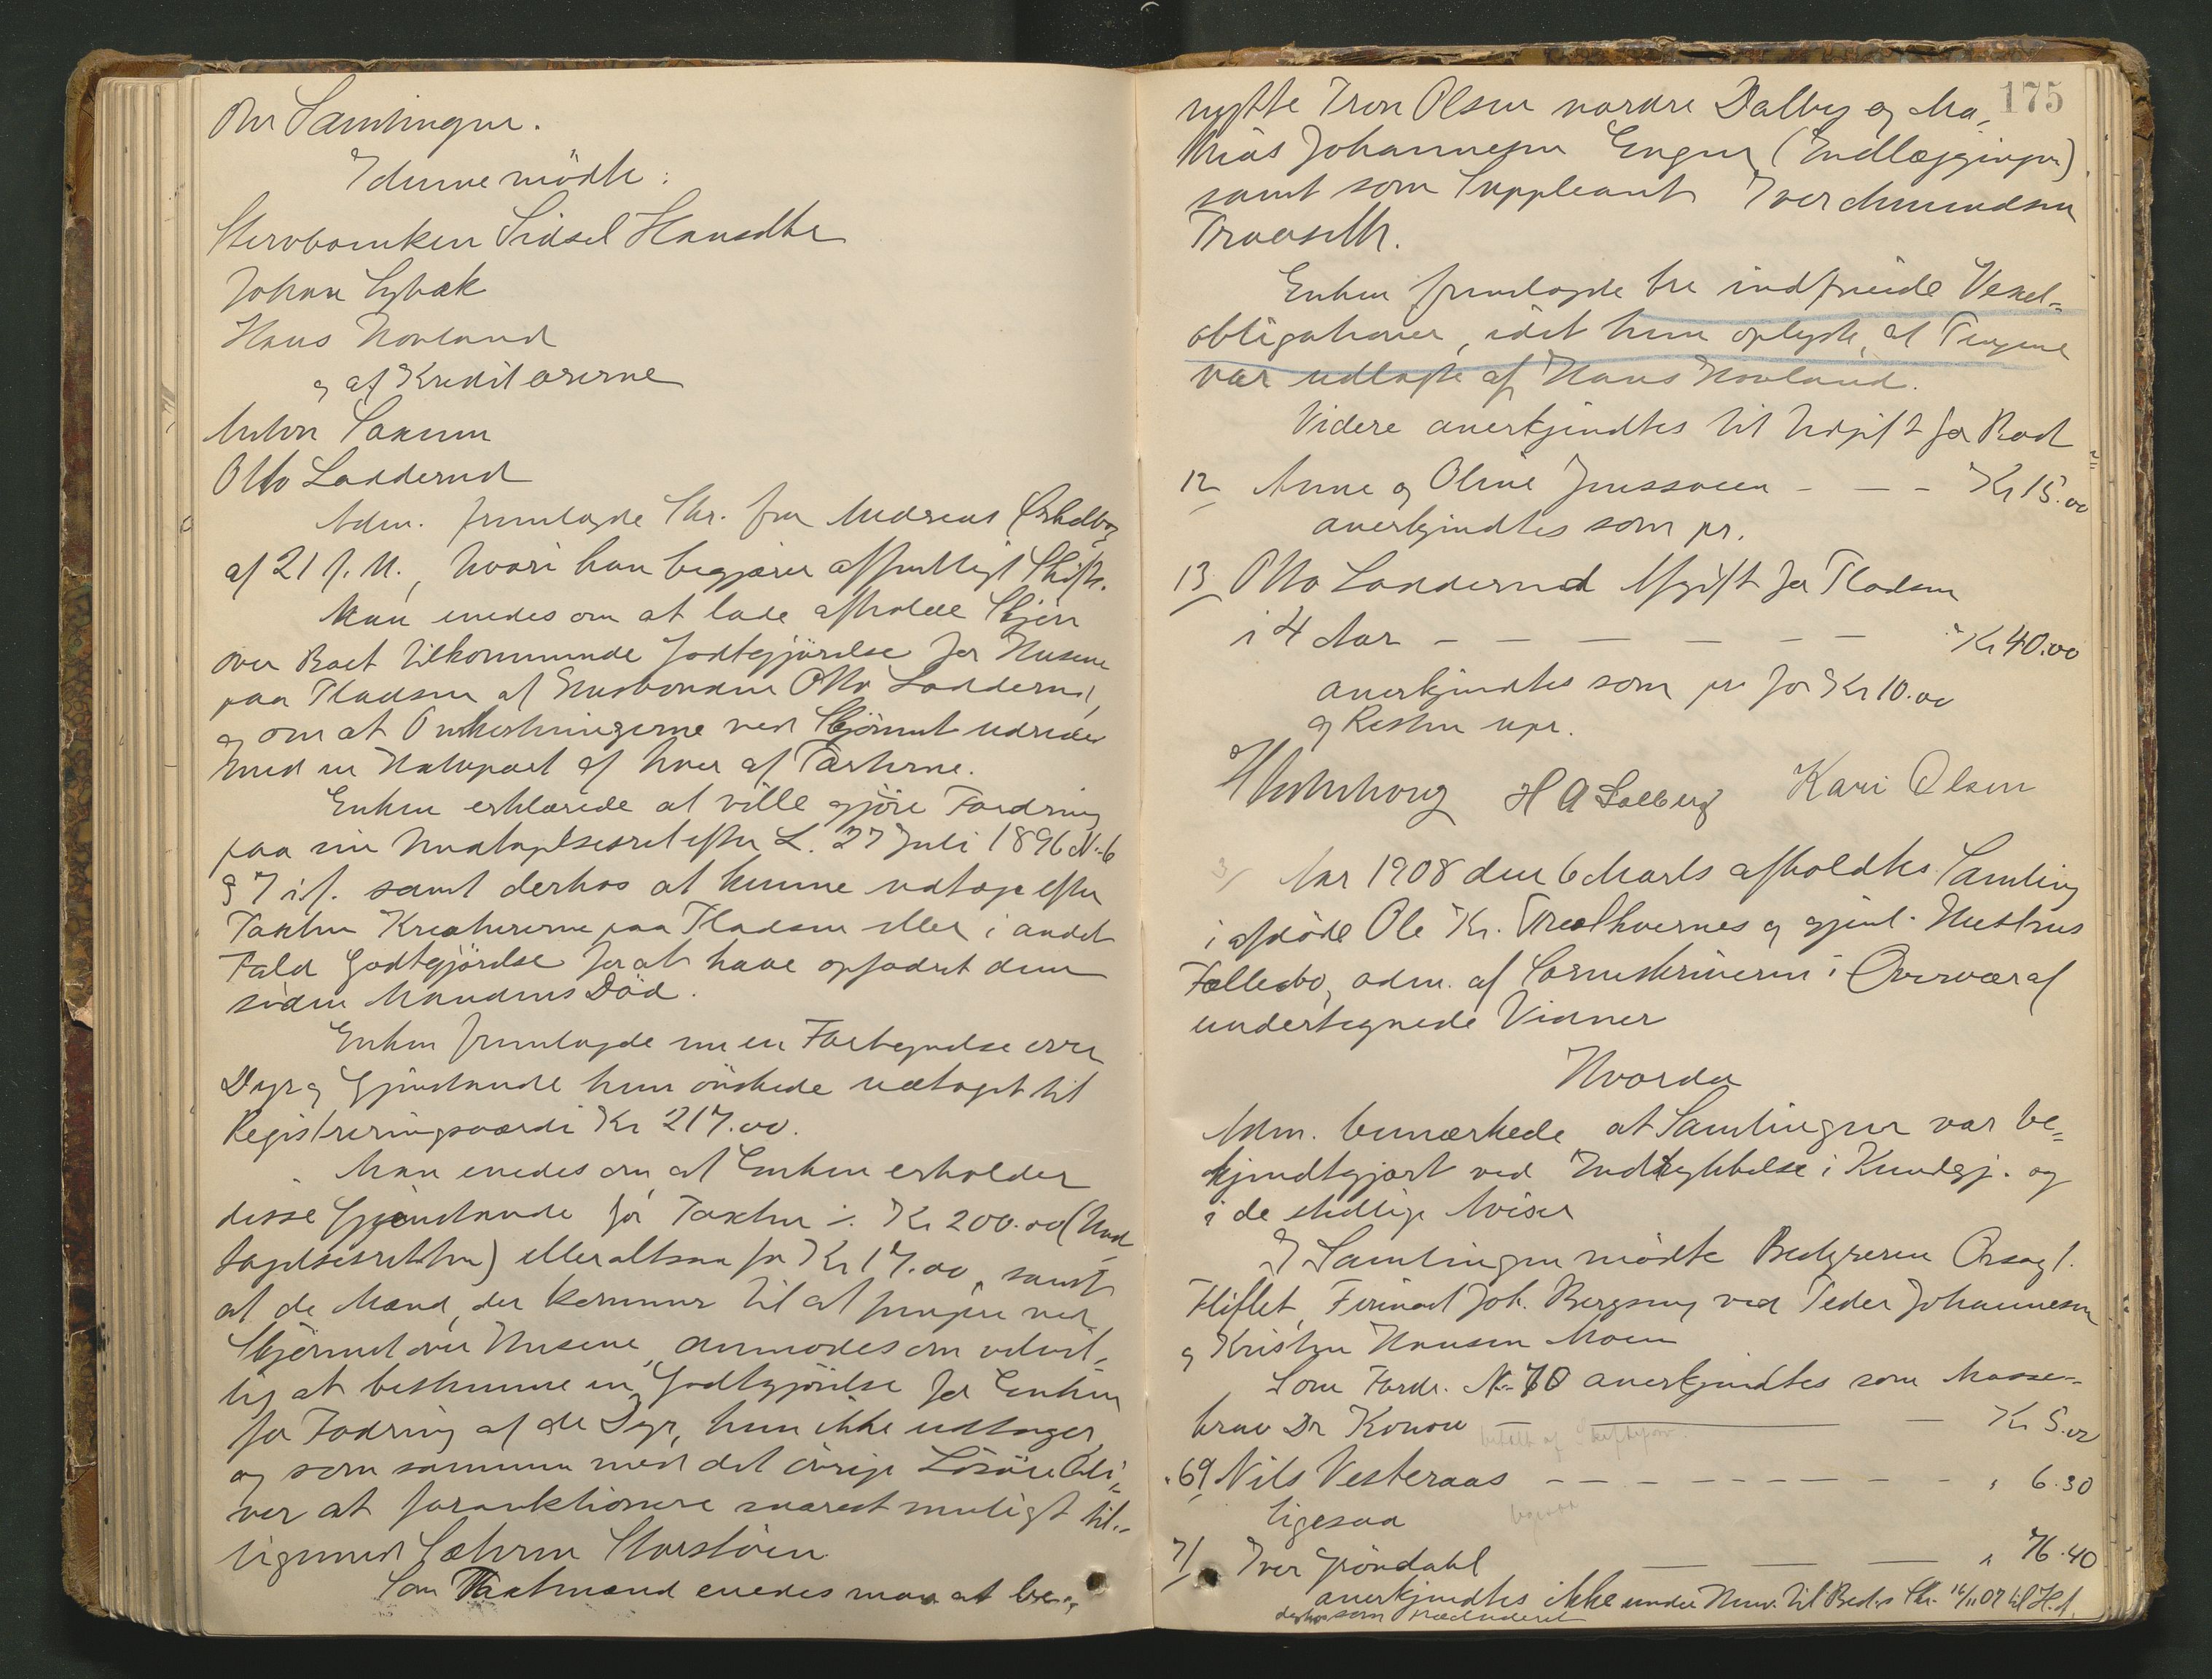 om Samlingen.
I denne mødte:
Stervboenken Sidsel Hansdtr
Johan Lybæk
Hans Norland
og af Kreditorerne
Anton Saxum
Otto Ladderud
Adm. fremlagde Skr. fra Andreas
af 21 f. M., hvori han begjærer offentligt Skifte.
Man enedes om at lade afholde Skjøn
over Boet tilkommende Godtgjørelse for Husene
paa Pladsen af Husbonden Otto Ladderud,
og om at Omkostningerne ved Skjønnet udredes
med en Halvpart af hver af Parterne.
Enken erklærede at ville gjøre Fordring
paa sin Undtagelsesret efter L. 27 Juli 1896 No 6
§ 7 i f. samt derhos at kunne udtage efter
Taxten Kreaturerne paa Pladsen eller i andet
Fald Godtgjørelse for at have opfødret dem
siden Mandens Död.
Enken fremlagde nu en Fortegnelse over
Dyr og Gjenstande hun önskede udtaget til
Registreringsværdi Kr 217.00.
Man enedes om at Enken erholder
disse Gjenstande for Taxten ÷ Kr 200.00 (Und
tagelsesretten) eller altsaa for Kr 17.00, samt
at de Mænd, der kommer til at fungere ved
Skjønnet over Husene, anmodes om uvild-
lig at bestemme en Godtgjørelse for Enken
for Fodring af de Dyr, hun ikke udtager
og som sammen med det øvrige Løsøre bli-
ver at forauktionere snarest muligt til-
ligemed Sæteren Storstøen.
Som Taxtmænd enedes man at be-
175
nytte Iver Olsen nordre Dalby og Ma-
thias Johannesen Engen (Indlæggingen)
samt som Suppleant Iver Amundsen
Traaseth.
Enken fremlagde tre indfriede Vexel-
obligationer, idet hun oplyste, at Pengene
var udlagte af Hans Norland.
Videre anerkjendtes til Udgift for Boet
12 Anne og Oline Jenssveen - - - Kr 15.00
anerkjendtes som pr.
13 Otto Ladderud Afgift for Pladsen
i 4 Aar - - - - - - Kr 40.00
anerkjendtes som pr for Kr 10.00
og Resten upr.
H A Solberg Kari Olsen
3/ Aar 1908 den 6 Marts afholdtes Samling
i afdöde Ole Kr. Træthvernes og gjenl. Hustrus
Fællesbo, adm. af Sorenskriveren i Overvær af
undertegnede Vidner
Hvorda
Adm. bemærkede at Samlingen var be-
kjendtgjort ved Indrykkelse i Kundgj. og
i de stedlige Aviser
I Samlingen mødte Bestyreren Orsagf.
Fliflet, Firmaet Joh. Bergseng ved Peder Johannesen
og Kristen Hansen Moen
Som Fordr. No 70 anerkjendtes som Masse-
krav Dr Konow - - - Kr 5.02
" 69 Nils Vesteraas - - - - - - - " 6.30
ligesaa
71 Iver Grøndahl - - - " 76.40
anerkjendtes ikke under Henv. til Best.s Skr. 16/11 07 til H.d.
derhos som præcluderet